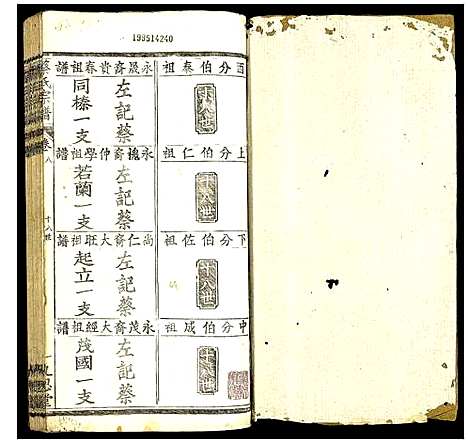 198514240
酉分伯泰祖
十八世
永晟裔貴春祖譜
左記蔡
同榛一支
上分伯仁祖
十八世
永槐裔仲學祖譜
左記蔡
若蘭一支
下分伯佐祖
十八世
尚仁裔大旺祖譜
左記蔡
起立一支
中分伯成祖
十八世
永茂裔大經祖譜
左記蔡
茂國一支
蔡氏宗譜
卷八
十八世